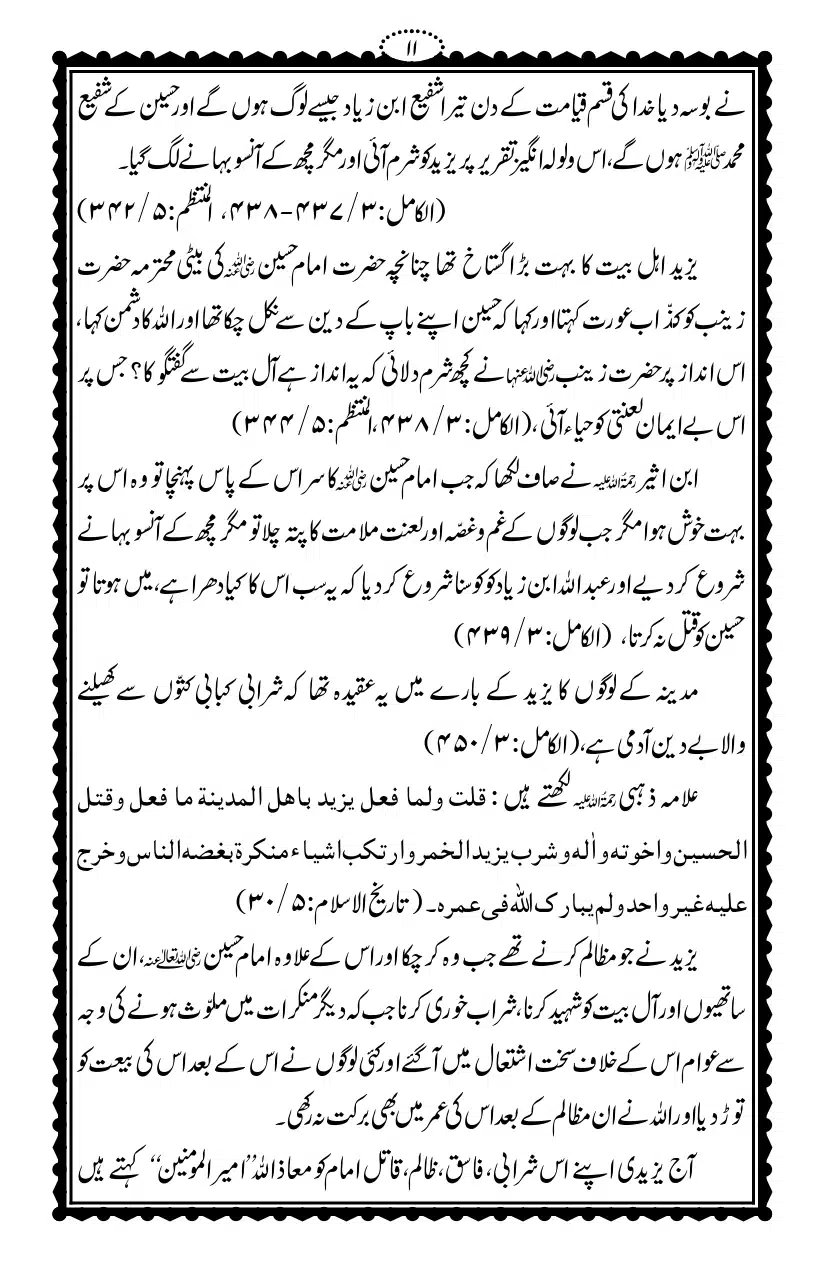 ۱۱
نے بوسہ دیا خدا کی قسم قیامت کے دن تیرا شفیع ابن زیاد جیسے لوگ ہوں گے اور حسین کے شفیع
محمد ﷺ ہوں گے، اس ولولہ انگیز تقریر پر یزید کو شرم آئی اور مگر مچھ کے آنسو بہانے لگ گیا۔
(الکامل: ۳/۴۳۷-۴۳۸، المنتظم: ۵/۳۴۲)
یزید اہل بیت کا بہت بڑا گستاخ تھا چنانچہ حضرت امام حسین رضی اللہ عنہ کی بیٹی محترمہ حضرت
زینب کو کذّاب عورت کہتا اور کہا کہ حسین اپنے باپ کے دین سے نکل چکا تھا اور اللہ کا دشمن کہا،
اس انداز پر حضرت زینب رضی اللہ عنہا نے کچھ شرم دلائی کہ یہ انداز ہے آل بیت سے گفتگو کا؟ جس پر
اس بے ایمان لعنتی کو حیاء آئی، (الکامل: ۳/۴۳۸، المنتظم: ۵/۳۴۴)
ابن اثیر رحمۃ اللہ علیہ نے صاف لکھا کہ جب امام حسین رضی اللہ عنہ کا سر اس کے پاس پہنچا تو وہ اس پر
بہت خوش ہوا مگر جب لوگوں کے غم و غصّہ اور لعنت ملامت کا پتہ چلا تو مگر مچھ کے آنسو بہانے
شروع کر دیے اور عبد اللہ ابن زیاد کو کوسنا شروع کر دیا کہ یہ سب اس کا کیا دھرا ہے، میں ہوتا تو
حسین کو قتل نہ کرتا، (الکامل: ۳/۴۳۹)
مدینہ کے لوگوں کا یزید کے بارے میں یہ عقیدہ تھا کہ شرابی کبابی کتّوں سے کھیلنے
والا بے دین آدمی ہے، (الکامل: ۳/۴۵۰)
علامہ ذہبی رحمۃ اللہ علیہ لکھتے ہیں: قلت ولما فعل یزید باھل المدینۃ ما فعل وقتل
الحسین واخوتہ واٰلہ وشرب یزید الخمر وارتکب اشیاء منکرۃ بغضہ الناس وخرج
علیہ غیر واحد ولم یبارک اللّٰہ فی عمرہ۔ (تاریخ الاسلام: ۵/۳۰)
یزید نے جو مظالم کرنے تھے جب وہ کر چکا اور اس کے علاوہ امام حسین رضی اللہ تعالیٰ عنہ، ان کے
ساتھیوں اور آل بیت کو شہید کرنا، شراب خوری کرنا جب کہ دیگر منکرات میں ملوّث ہونے کی وجہ
سے عوام اس کے خلاف سخت اشتعال میں آگئے اور کئی لوگوں نے اس کے بعد اس کی بیعت کو
توڑ دیا اور اللہ نے ان مظالم کے بعد اس کی عمر میں بھی برکت نہ رکھی۔
آج یزیدی اپنے اس شرابی، فاسق، ظالم، قاتل امام کو معاذ اللہ ”امیر المومنین“ کہتے ہیں